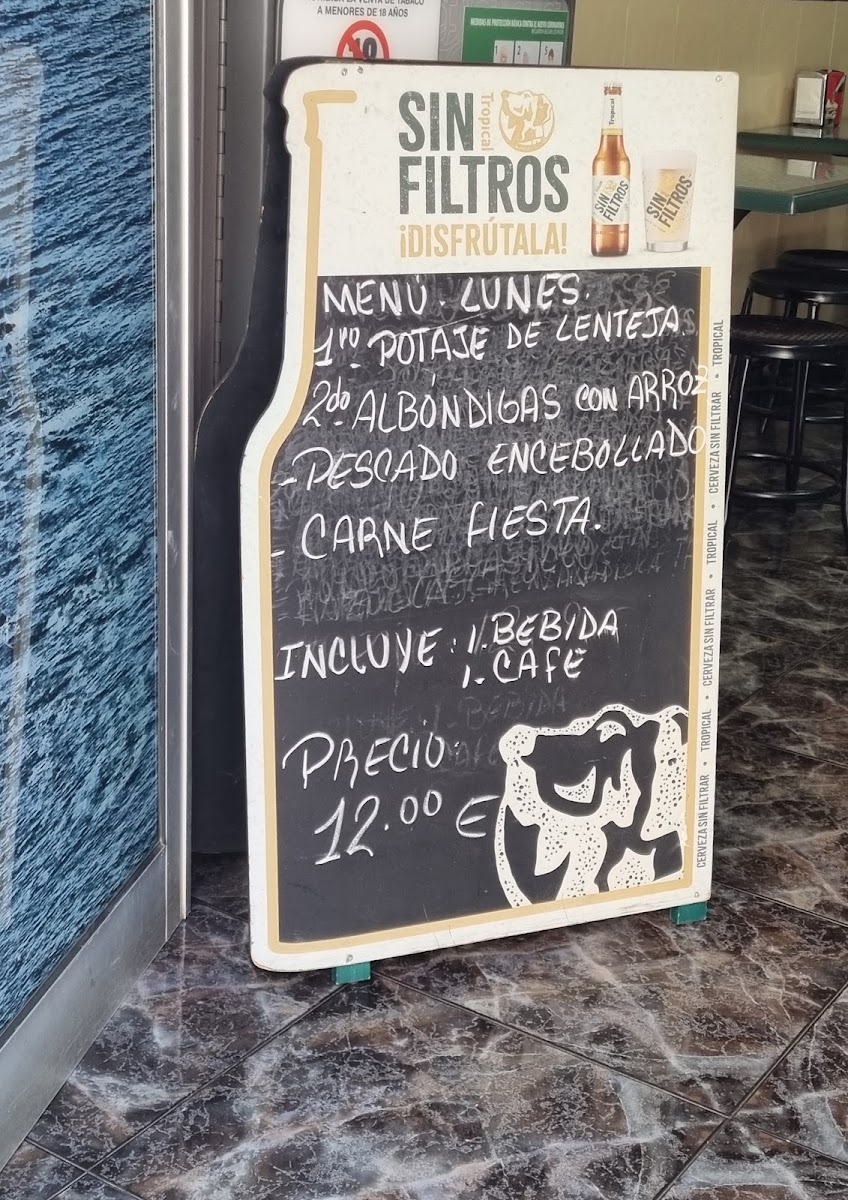 A MENORES DE 18 AÑOS
MEDIDAS DE PROTECCIÓN BÁSICA CONTRA EL NUEVO CORONAVIRUS
SIN
Tropical
FILTROS
¡DISFRÚTALA!
Tropical
SIN FILTROS
SIN FILTROS
MENÚ. LUNES.
1ro. POTAJE DE LENTEJA.
2do. ALBÓNDIGAS CON ARROZ
- PESCADO ENCEBOLLADO
- CARNE FIESTA.
INCLUYE: 1. BEBIDA
1- CAFE
PRECIO:
12.00 €
CERVEZA SIN FILTRAR • TROPICAL • CERVEZA SIN FILTRAR • TROPICAL • CERVEZA SIN FILTRAR • TROPICAL